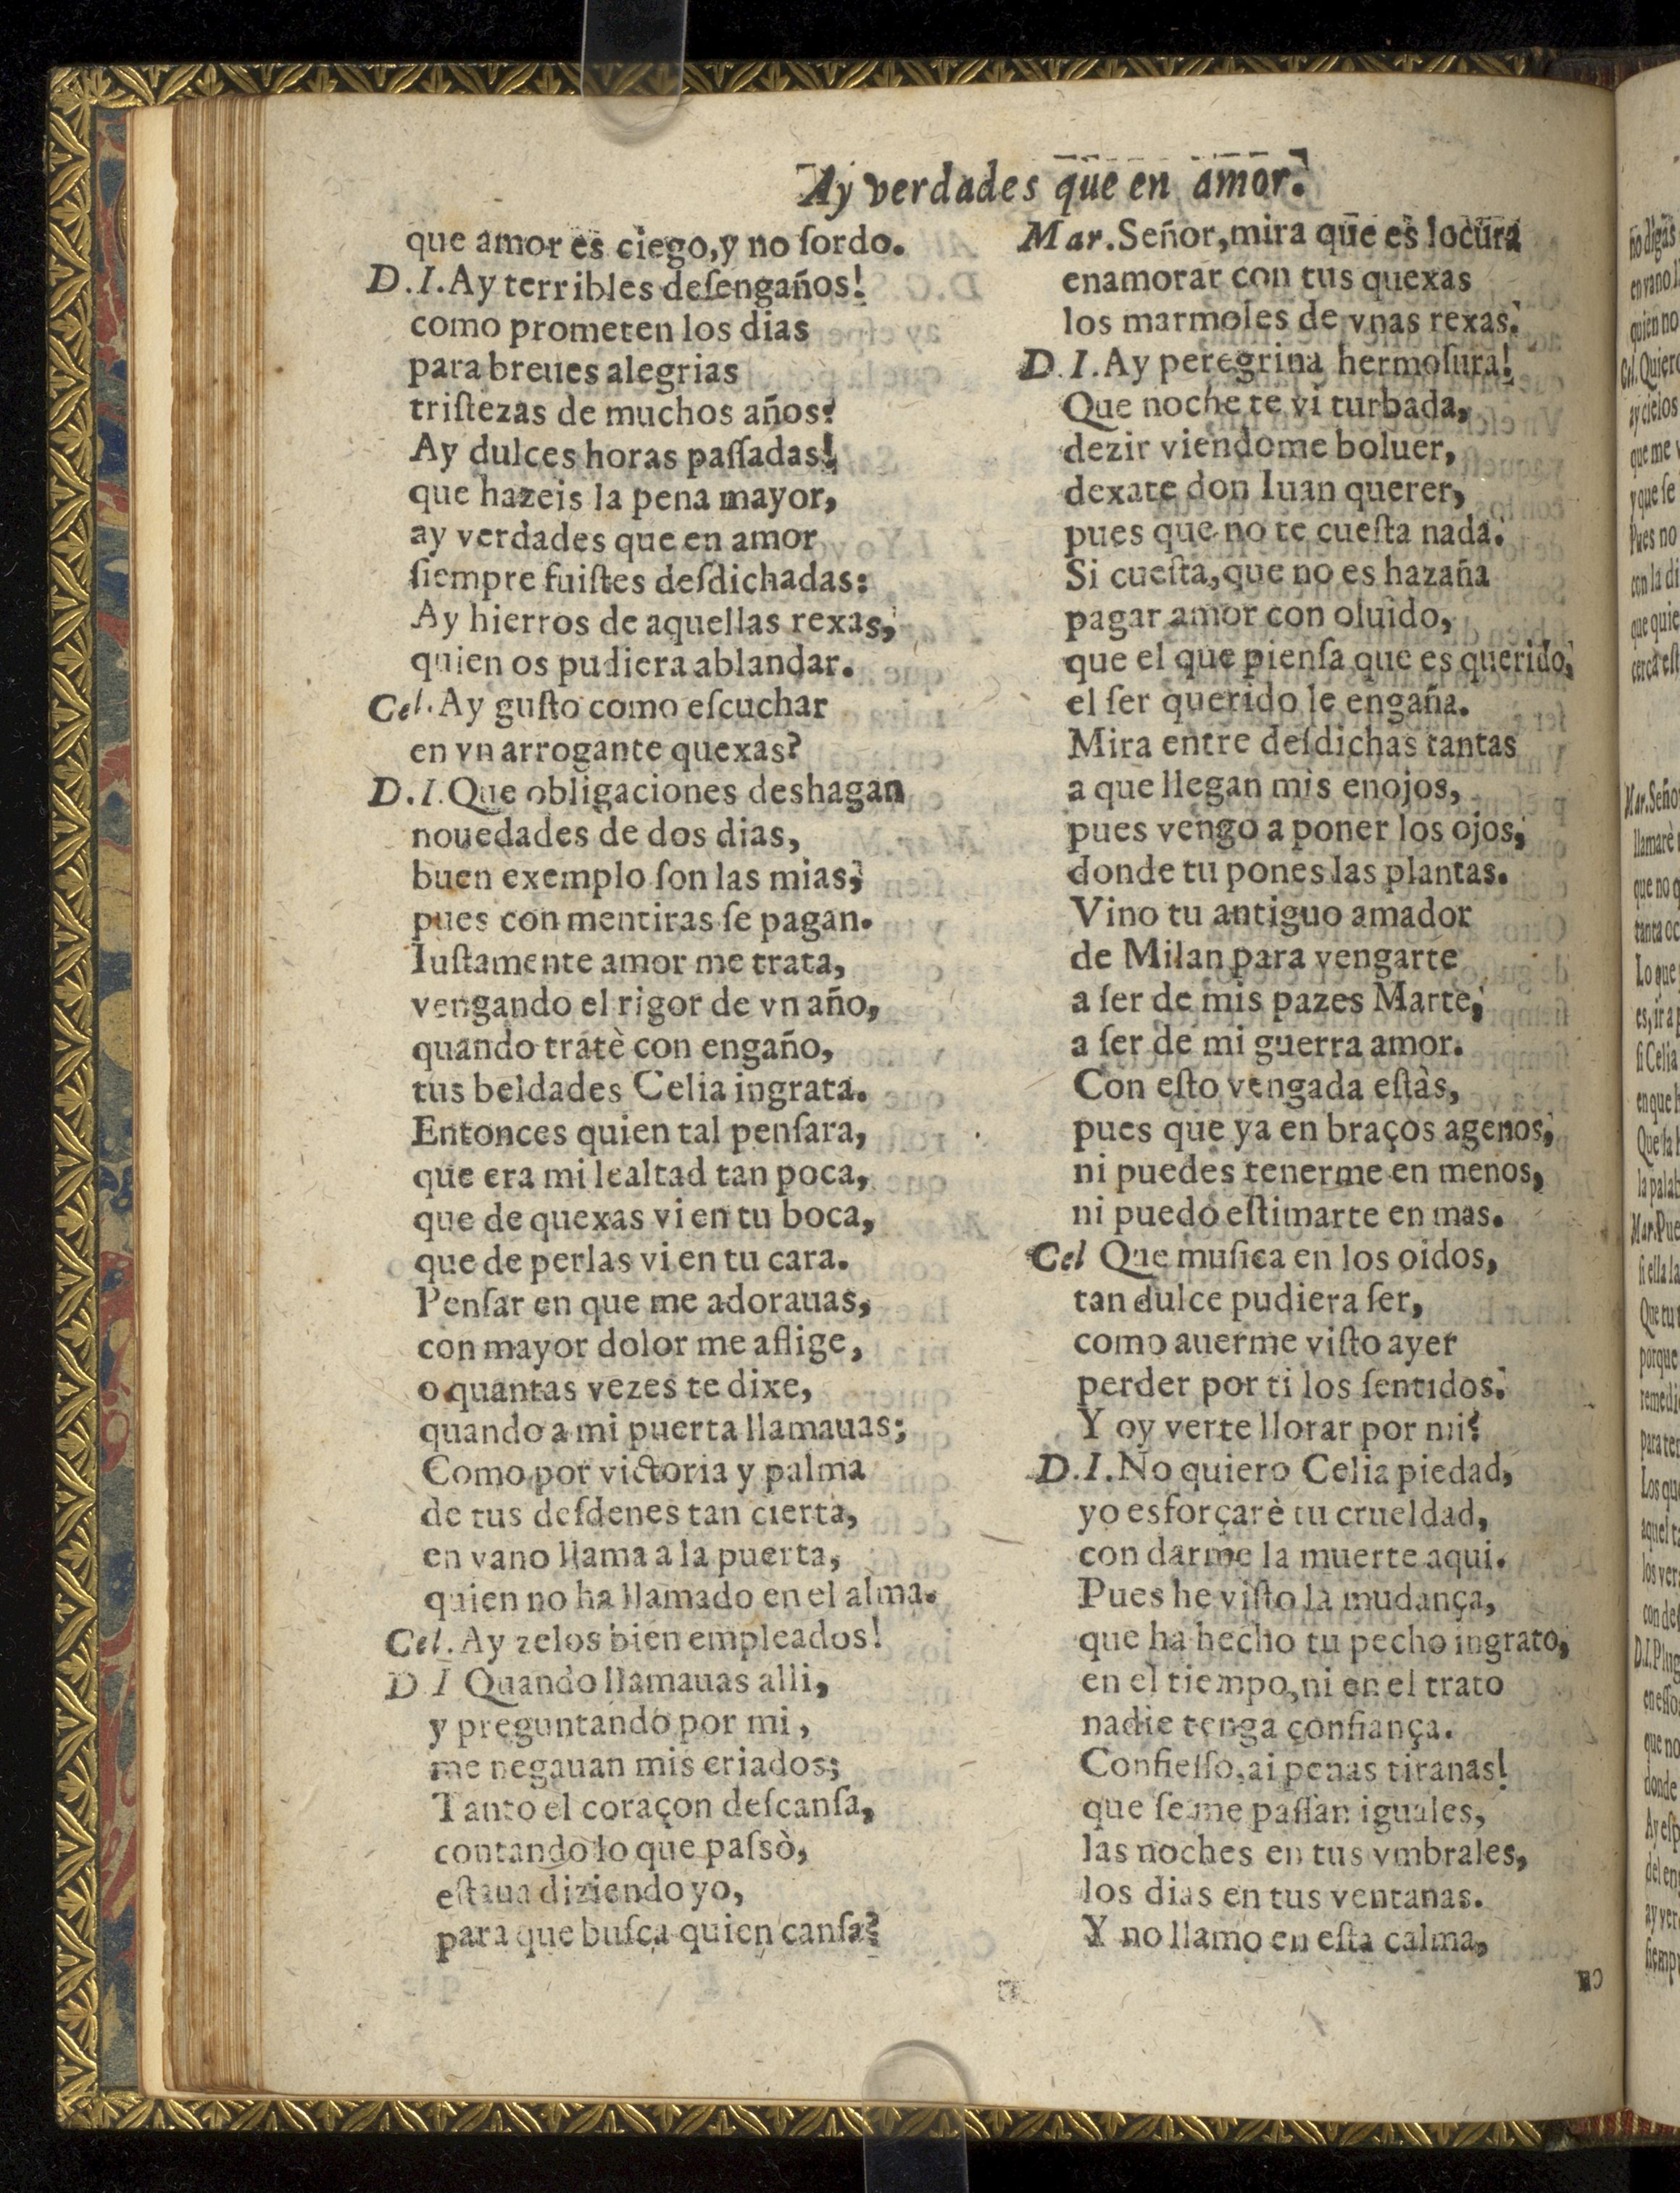 Ay verdades que en amor.
que amor es ciego, y no ſordo.
D.I. Ay terribles deſengaños!
como prometen los dias
para breues alegrias
triſtezas de muchos años?
Ay dulces horas paſſadas!
que hazeis la pena mayor,
ay verdades que en amor
ſiempre fuiſtes deſdichadas:
Ay hierros de aquellas rexas,
quien os pudiera ablandar.
Cel. Ay guſto como eſcuchar
en vn arrogante quexas?
D.I. Que obligaciones deshagan
nouedades de dos dias,
buen exemplo ſon las mias,
pues con mentiras ſe pagan.
Iuſtamente amor me trata,
vengando el rigor de vn año,
quando tratè con engaño,
tus beldades Celia ingrata.
Entonces quien tal penſara,
que era mi lealtad tan poca,
que de quexas vi en tu boca,
que de perlas vi en tu cara.
Penſar en que me adorauas,
con mayor dolor me aflige,
o quantas vezes te dixe,
quando a mi puerta llamauas;
Como por victoria y palma
de tus deſdenes tan cierta,
en vano llama a la puerta,
quien no ha llamado en el alma.
Cel. Ay zelos bien empleados!
D I Quando llamauas alli,
y preguntando por mi,
me negauan mis criados;
Tanto el coraçon deſcanſa,
contando lo que paſsò,
eſtaua diziendo yo,
para que buſca quien canſa?
Mar. Señor, mira que es locura
enamorar con tus quexas
los marmoles de vnas rexas.
D.I. Ay peregrina hermoſura!
Que noche te vi turbada,
dezir viendome boluer,
dexate don Iuan querer,
pues que no te cueſta nada.
Si cueſta, que no es hazaña
pagar amor con oluido,
que el que pienſa que es querido,
el ſer querido le engaña.
Mira entre deſdichas tantas
a que llegan mis enojos,
pues vengo a poner los ojos,
donde tu pones las plantas.
Vino tu antiguo amador
de Milan para vengarte
a ſer de mis pazes Marte,
a ſer de mi guerra amor.
Con eſto vengada eſtàs,
pues que ya en braços agenos,
ni puedes tenerme en menos,
ni puedo eſtimarte en mas.
Cel Que muſica en los oidos,
tan dulce pudiera ſer,
como auerme viſto ayer
perder por ti los ſentidos.
Y oy verte llorar por mi?
D.I. No quiero Celia piedad,
yo esforçarè tu crueldad,
con darme la muerte aqui.
Pues he viſto la mudança,
que ha hecho tu pecho ingrato,
en el tiempo, ni en el trato
nadie tenga confiança.
Confieſſo, ai penas tiranas!
que ſe me paſſan iguales,
las noches en tus vmbrales,
los dias en tus ventanas.
Y no llamo en eſta calma,